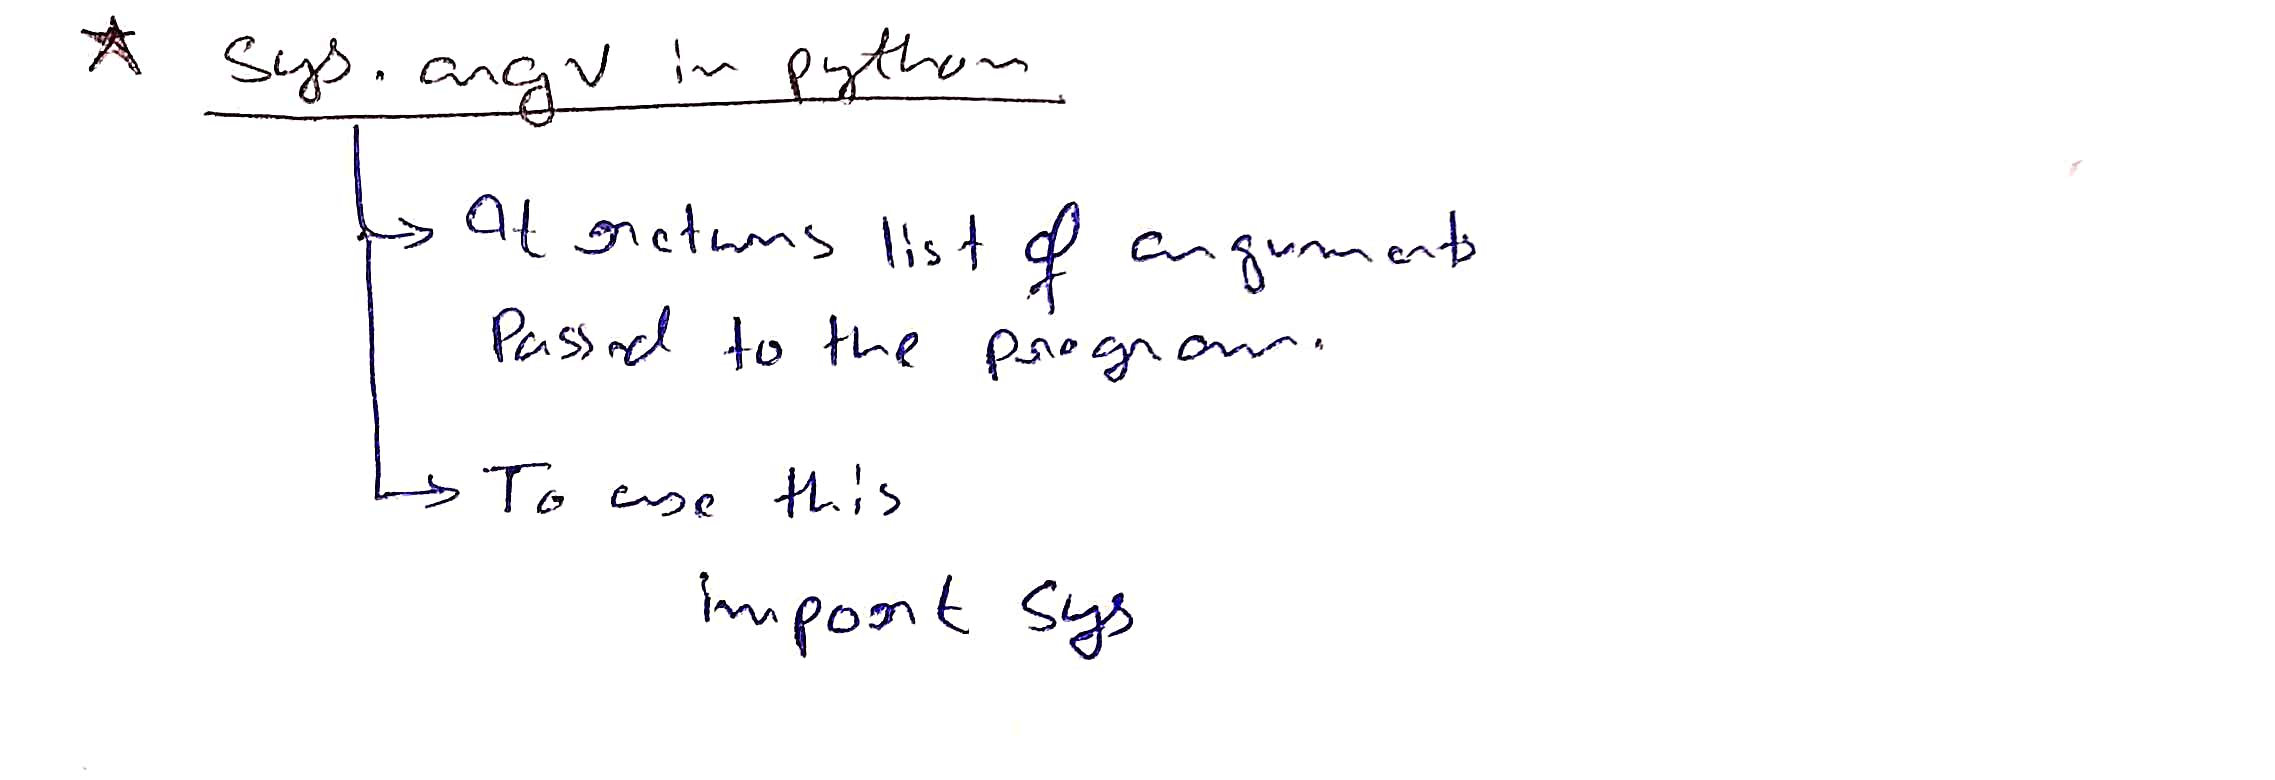 ★ Sys. argv in python
→ It returns list of arguments
Passed to the program.
→ To use this
import sys